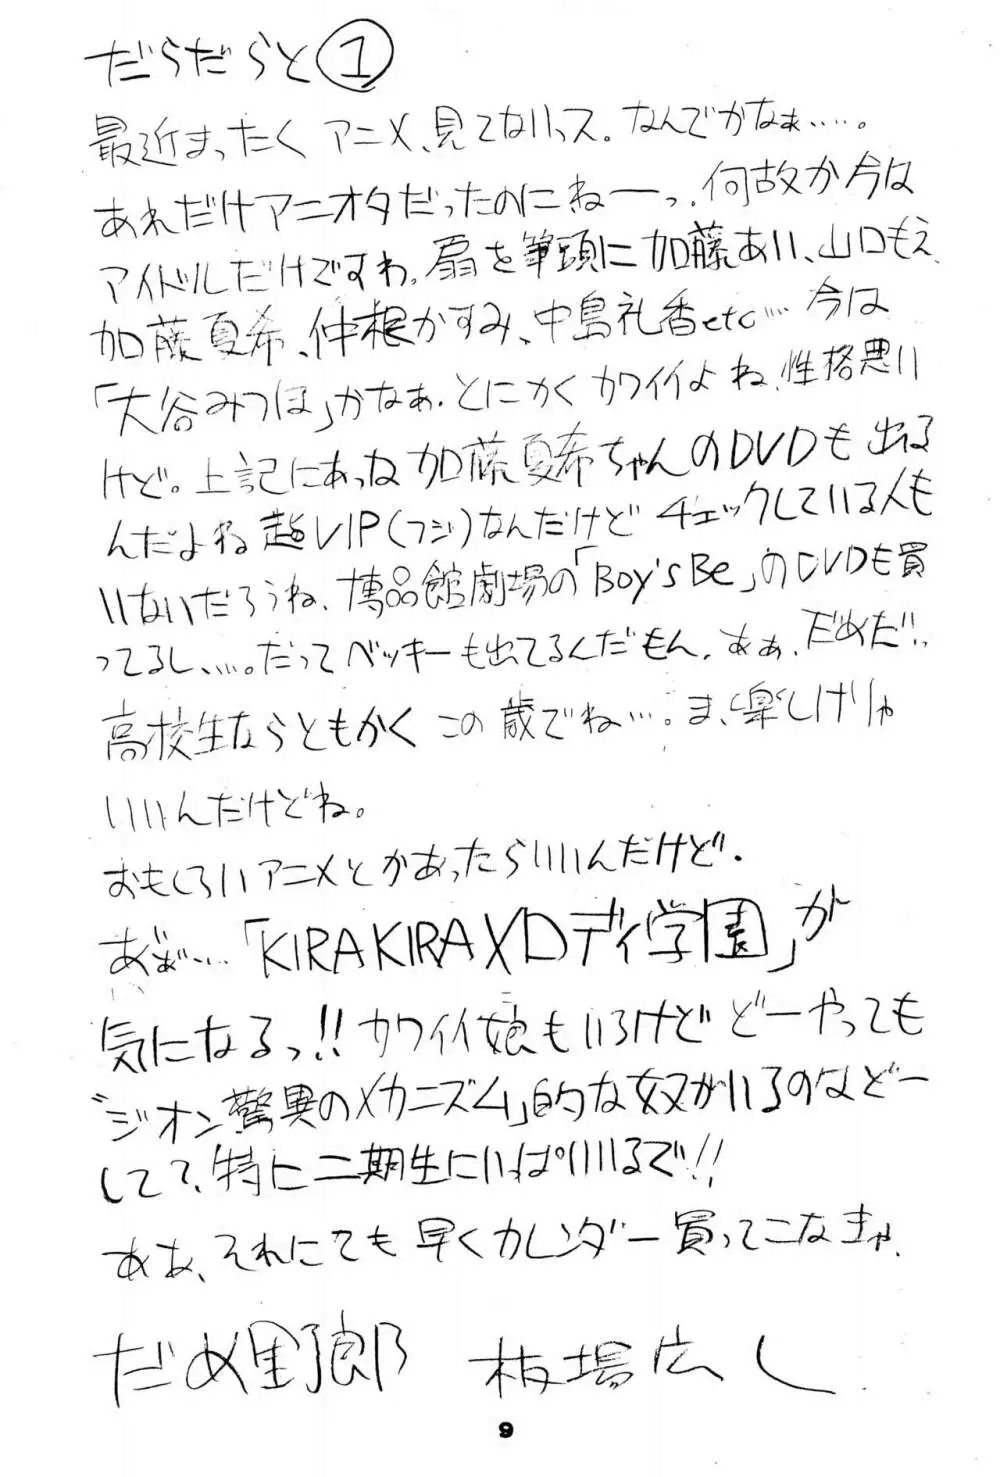 だらだらと①
最近まったく アニメ、見てないっス。なんでかなぁ‥‥。
あれだけアニオタだったのにねーっ、何故か今は
アイドルだけですわ。扇を筆頭に加藤あい、山口もえ、
加藤夏希、仲根かすみ、中島礼香etc… 今は
「大谷みつほ」かなぁ。とにかく カワイイよね、性格悪い
けど。上記にあった加藤夏希ちゃんのDVDも出る
んだよね 超VIP(フジ)なんだけど チェックしている人も
いないだろうね、博品館劇場の「Boy's Be」のDVDも買
ってるし、‥‥。だってベッキーも出てるんだもん。あぁ、だめだ!!
高校生ならともかく この歳でね‥‥。ま、楽しけりゃ
いいんだけどね。
おもしろいアニメとかあったらいいんだけど。
あぁ‥‥「KIRAKIRAメロディ学園」が
気になるっ!! カワイイ娘もいるけど どーやっても
"ジオン驚異のメカニズム」的な奴がいるのなどー
して?、特に二期生にいぱいいるで!!
ああ、それにても 早くカレンダー買ってこなきゃ、
だめ野郎 板場広し
9